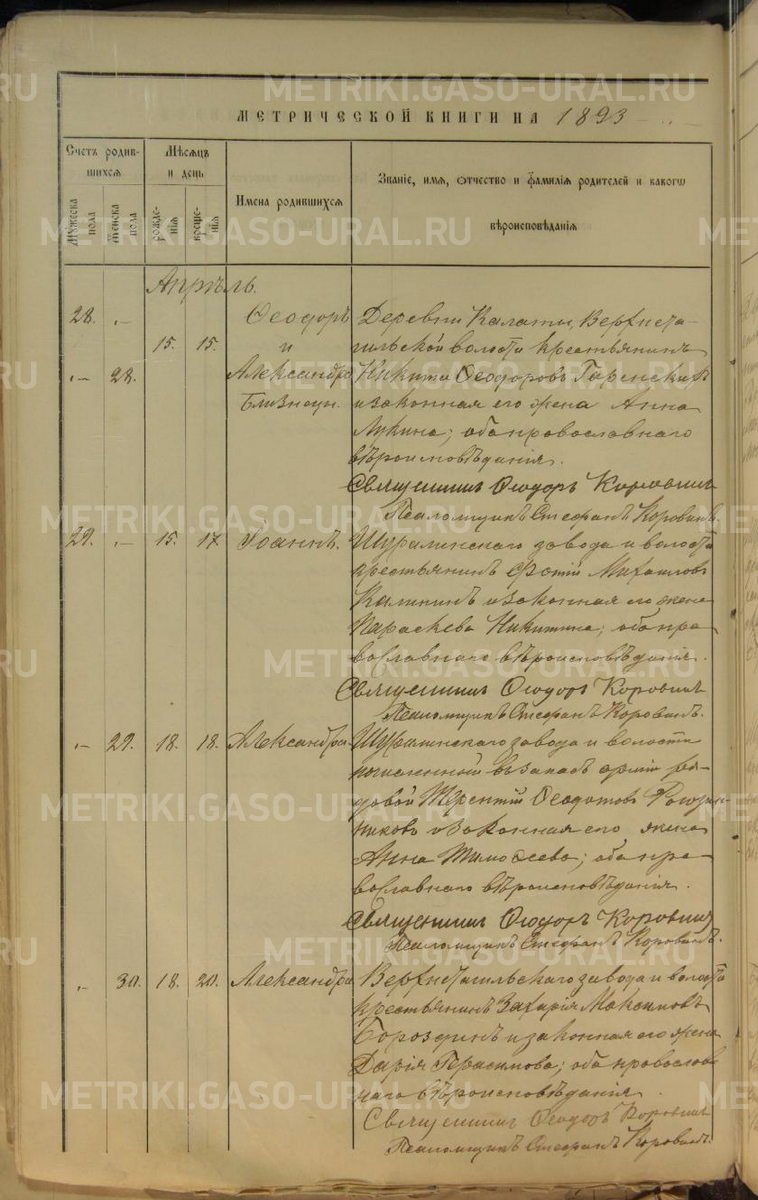 МЕТРИЧЕСКОЙ КНИГИ НА 1893
Счетъ родив-
шихся
Мѣсяцъ
и день
Имена родившихся
Званіе, имя, отчество и фамилія родителей и какогѡ
вѣроисповѣданія
Мужеска
пола
Женска
пола
рожде-
нія
креще-
нія
Апрѣль.
28. „- 15. 15. Ѳеодоръ
и
„- 28. Александра
Близнецы.
Деревни Калаты, Верхнета-
гильской волости крестьянинъ
Никита Ѳеодоровъ
и законная его жена Анна
Лукина; оба православнаго
вѣроисповѣданія.
Священникъ Ѳеодоръ Коровинъ
Псаломщикъ Стефанъ Коровинъ.
29. „- 15. 17 Іоаннъ. Шуралинскаго завода и волости
крестьянинъ Фотій Михаиловъ
Калининъ и законная его жена
Параскева Никитина; оба пра-
вославнаго вѣроисповѣданія.
Священникъ Ѳеодоръ Коровинъ
Псаломщикъ Стефанъ Коровинъ.
„- 29. 18. 18. Александра Шуралинскаго завода и волости
въ запасъ арміи ря-
довой Терентій Ѳеодотовъ
и законная его жена
Анна Тимоѳеева; оба пра-
вославнаго вѣроисповѣданія.
Священникъ Ѳеодоръ Коровинъ
Псаломщикъ Стефанъ Коровинъ.
„- 30. 18. 20. Александра Верхнетагильскаго завода и волости
крестьянинъ Захарія Максимовъ
Бороздинъ и законная его жена
Дарія Герасимова; оба православ-
наго вѣроисповѣданія
Священникъ Ѳеодоръ Коровинъ
Псаломщикъ Стефанъ Коровинъ.
METRIKI.GASO-URAL.RU